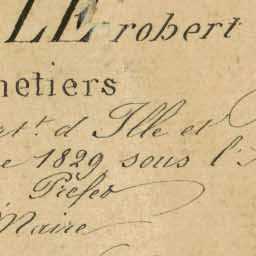 LE robert
netiers
rt. d'Ille et
e 1829 sous l'
Préfet
Maire